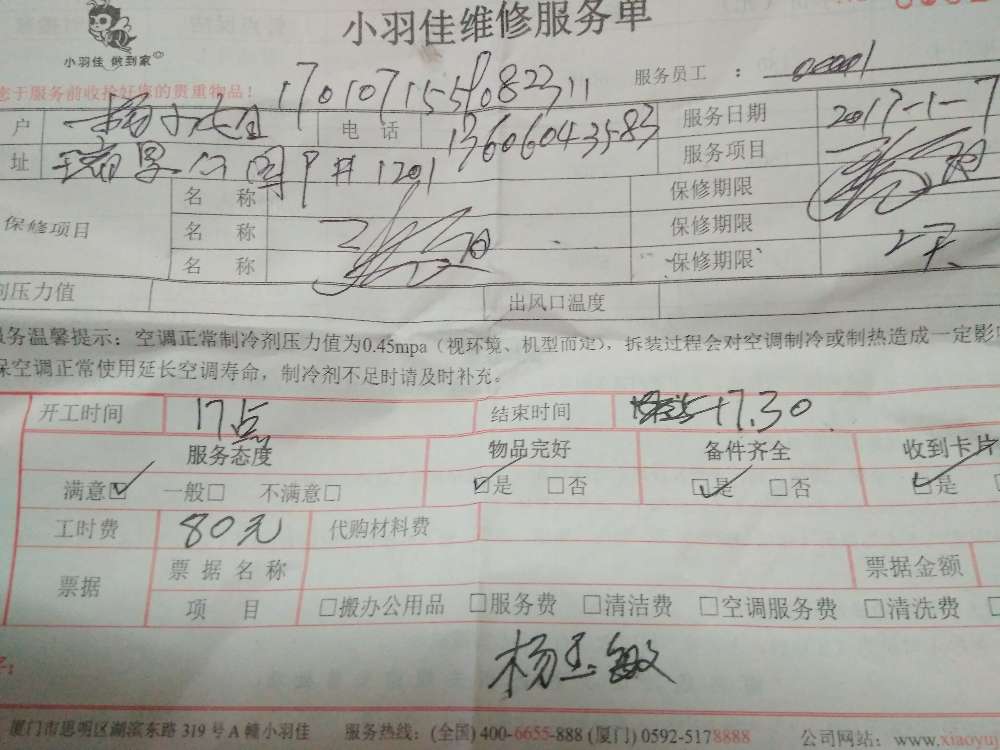 小羽佳维修服务单
小羽佳 做到家
服务员工 : 00001
您于服务前收拾好您的贵重物品! 1701071559082311
户 杨小姐 电 话 13606043583 服务日期 2017-1-7
址 1201 服务项目
保修项目 名 称 保修期限
名 称 保修期限
名 称 保修期限
剂压力值 出风口温度
服务温馨提示：空调正常制冷剂压力值为0.45mpa（视环境、机型而定），拆装过程会对空调制冷或制热造成一定影
保空调正常使用延长空调寿命，制冷剂不足时请及时补充。
开工时间 17点 结束时间 17.30
服务态度 物品完好 备件齐全 收到卡片
满意☑ 一般□ 不满意□ ☑是 □否 ☑是 □否 ☑是
工时费 80元 代购材料费
票据 票据名称 票据金额
项 目 □搬办公用品 □服务费 □清洁费 □空调服务费 □清洗费
杨玉敏
厦门市思明区湖滨东路 319 号 A 幢小羽佳 服务热线：(全国) 400-6655-888 (厦门) 0592-5178888 公司网站：www.xiaoyu